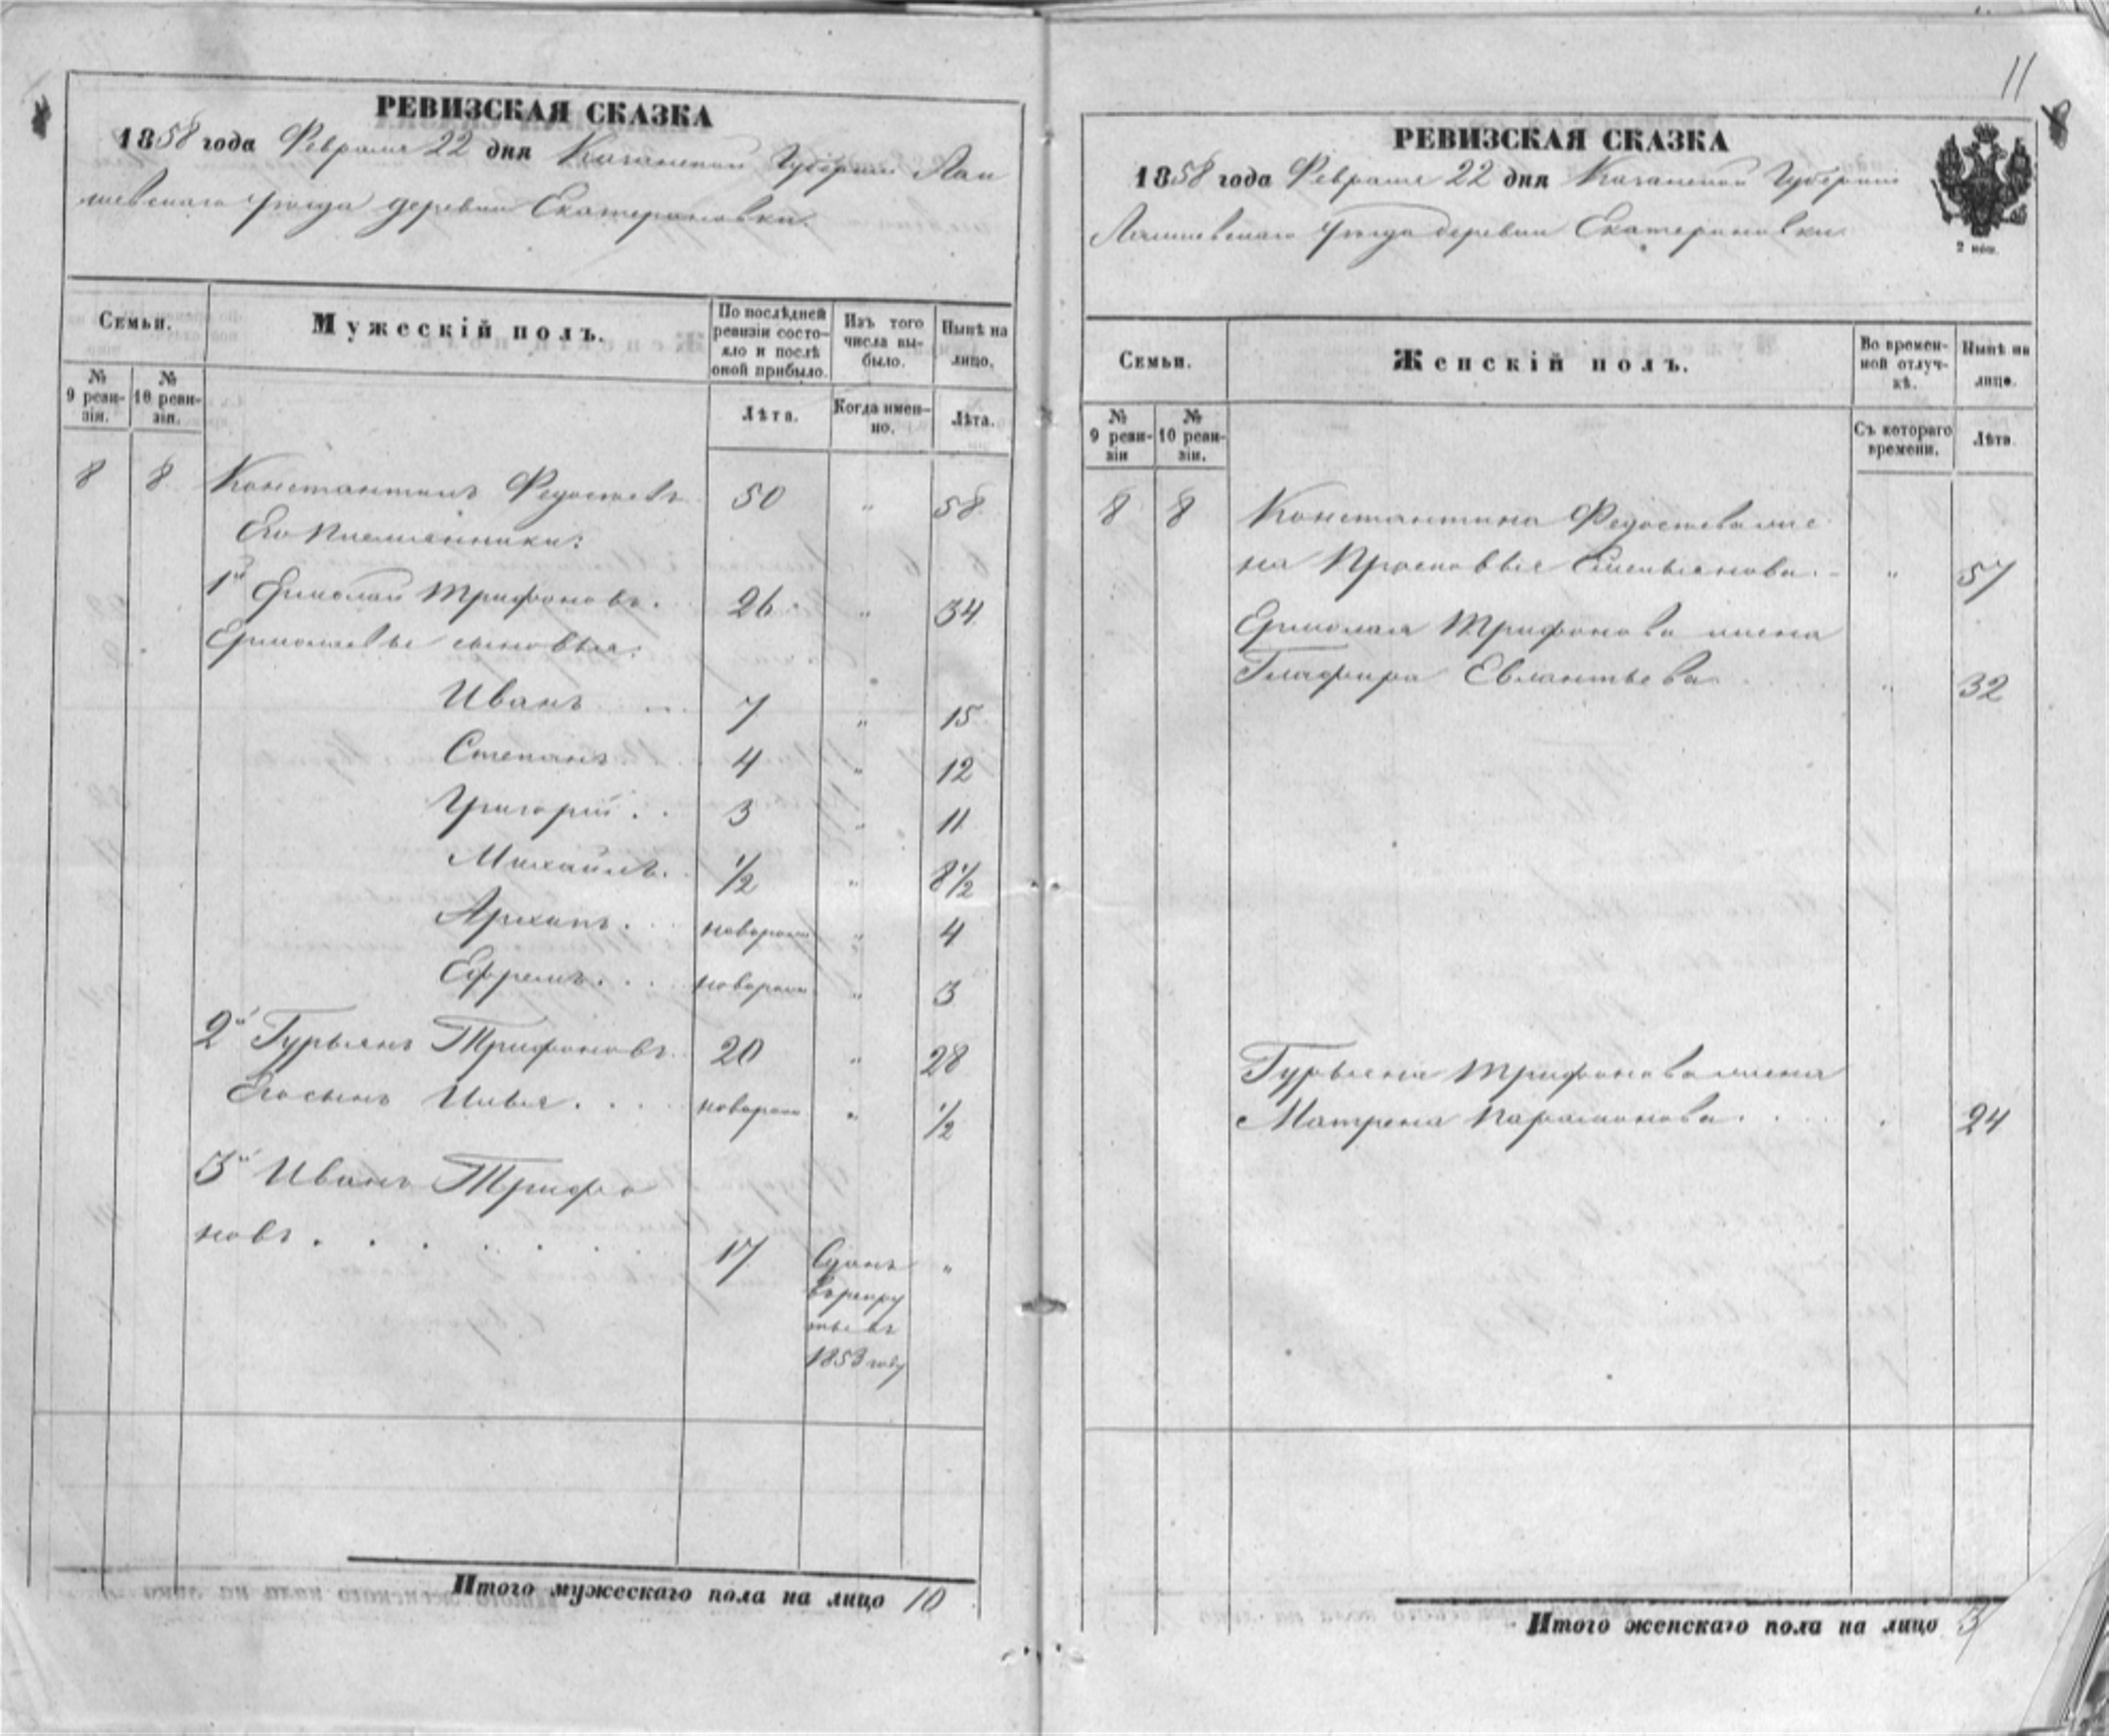 РЕВИЗСКАЯ СКАЗКА
1858 года Февраля 22 дня Казанской Губернии Лаи
шевскаго уѣзда деревни Екатериновки.
Семьи.
Мужескій полъ.
По послѣдней ревизіи состояло и послѣ оной прибыло.
Изъ того числа выбыло.
Нынѣ на лицо.
№ 9 ревизіи.
№ 10 ревизіи.
Лѣта.
Когда именно.
Лѣта.
8 8 Константинъ Федосѣевъ 50 " 58
Его племянники:
1й Ермолай Трифоновъ. 26 " 34
Ермолаевы сыновья:
Иванъ 7 " 15
Степанъ 4 " 12
Григорій 3 " 11
Михайлъ. 1/2 " 8 1/2
Архипъ. новорожд " 4
Ефремъ. новорожд " 3
2й Гурьянъ Трифоновъ 20 " 28
Его сынъ Илья. новорожд " 1/2
3й Иванъ Трифо
новъ. 17 Сданъ "
в рекру
ты въ
1853 году
Итого мужескаго пола на лицо 10
11
РЕВИЗСКАЯ СКАЗКА
1858 года Февраля 22 дня Казанской Губерніи
Лаишевскаго уѣзда деревни Екатериновки
2 коп.
Семьи.
Женскій полъ.
Во временной отлучкѣ.
Нынѣ на лицо.
№ 9 ревизіи
№ 10 ревизіи.
Съ котораго времени.
Лѣта.
8 8 Константина Федосѣева же
на Прасковья Емельянова. " 57
Ермолая Трифонова жена
Глафира Евлантьева " 32
Гурьяна Трифонова жена
Матрена Парамонова. 24
Итого женскаго пола на лицо 3